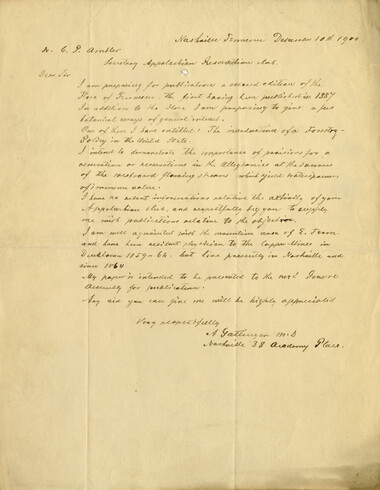 Nashville Tennessee December 10th 1900
Dr. C. P. Ambler
Secretary Appalachian Reservation Club.
Dear Sir
I am preparing for publication a second edition of the
Flora of Tennessee the first having been published in 1887
In addition to the Flora I am preparing to give a few
botanical essays of general interest.
One of them I have entitled: The inauguration of a Forestry-
Policy in the United States.
I intend to demonstrate the importance of provisions for a
reservation or reservations in the Alleghanies at the sources
of the westward flowing streams which yield waterpowers
of immense value.
I have no extent informations relative the activity of your
Appalachian club, and respectfully beg you to supply
me with publications relative to the object.
I am well aquainted with the mountain area of E. Tenn
and have been resident physician to the Copper Mines in
Ducktown 1859-64. but live presently in Nashville and
since 1864
My paper is intended to be presented to the next General
Assembly for publication.
Any aid you can give me will be highly appreciated
Very respectfully
A Gattinger M.D
Nashville 38 Academy Place.